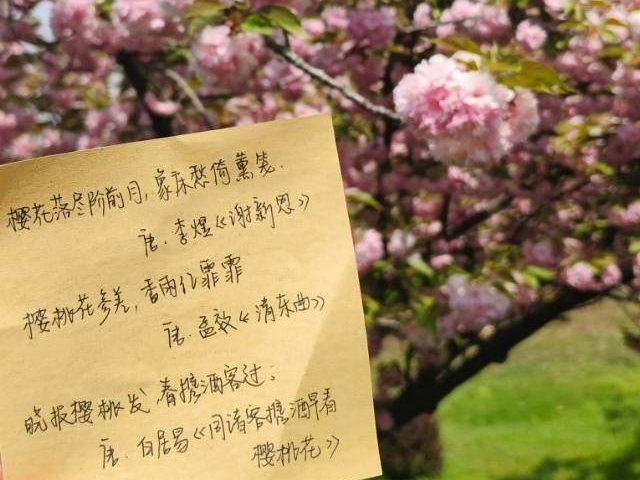 樱花落尽阶前月,象床愁倚薰笼.
唐.李煜《谢新恩》
樱桃花参差,香雨红霏霏
唐.孟效《清东曲》
晓报樱桃发,春携酒客过;
唐.白居易《同诸客携酒早看
樱桃花》